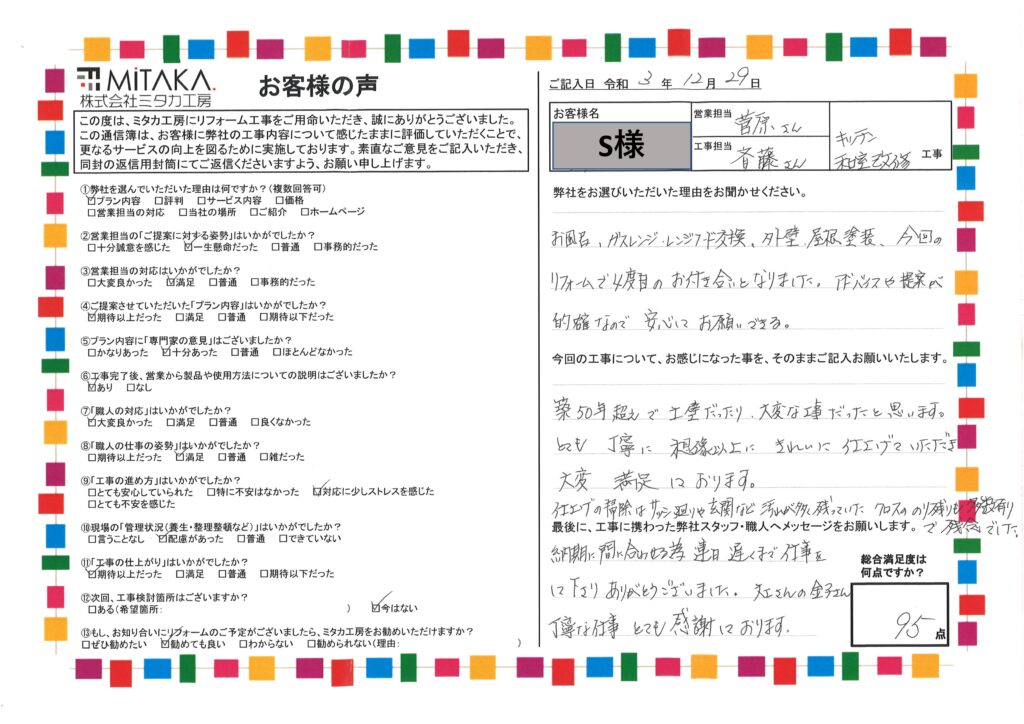 MiTAKA.
株式会社ミタカ工房
お客様の声
この度は、ミタカ工房にリフォーム工事をご用命いただき、誠にありがとうございました。
この通信簿は、お客様に弊社の工事内容について感じたままに評価していただくことで、
更なるサービスの向上を図るために実施しております。素直なご意見をご記入いただき、
同封の返信用封筒にてご返信くださいますよう、お願い申し上げます。
①弊社を選んでいただいた理由は何ですか?(複数回答可)
☑プラン内容 □評判 □サービス内容 □価格
□営業担当の対応 □当社の場所 □ご紹介 □ホームページ
②営業担当の「ご提案に対する姿勢」はいかがでしたか?
□十分誠意を感じた ☑一生懸命だった □普通 □事務的だった
③営業担当の対応はいかがでしたか?
□大変良かった ☑満足 □普通 □事務的だった
④ご提案させていただいた「プラン内容」はいかがでしたか?
☑期待以上だった □満足 □普通 □期待以下だった
⑤プラン内容に「専門家の意見」はございましたか?
□かなりあった ☑十分あった □普通 □ほとんどなかった
⑥工事完了後、営業から製品や使用方法についての説明はございましたか?
☑あり □なし
⑦「職人の対応」はいかがでしたか?
☑大変良かった □満足 □普通 □良くなかった
⑧「職人の仕事の姿勢」はいかがでしたか?
□期待以上だった ☑満足 □普通 □雑だった
⑨「工事の進め方」はいかがでしたか?
□とても安心していられた □特に不安はなかった ☑対応に少しストレスを感じた
□とても不安を感じた
⑩現場の「管理状況(養生・整理整頓など)」はいかがでしたか?
□言うことなし ☑配慮があった □普通 □できていない
⑪「工事の仕上がり」はいかがでしたか?
☑期待以上だった □満足 □普通 □期待以下だった
⑫次回、工事検討箇所はございますか?
□ある(希望箇所: ) ☑今はない
⑬もし、お知り合いにリフォームのご予定がございましたら、ミタカ工房をお勧めいただけますか?
□ぜひ勧めたい ☑勧めても良い □わからない □勧められない(理由: )
ご記入日 令和 3 年 12 月 29 日
お客様名
S様
営業担当 菅原さん
工事担当 斉藤さん
キッチン
和室改修 工事
弊社をお選びいただいた理由をお聞かせください。
お風呂、ガスレンジ・レンジフード交換、外壁、屋根塗装、今回の
リフォームで4度目のお付き合いとなりました。アドバイスや提案が
的確なので 安心してお願いできる。
今回の工事について、お感じになった事を、そのままご記入お願いいたします。
築50年超えで 土壁だったり、大変な工事だったと思います。
とても 丁寧に 想像以上に きれいに 仕上げていただき
大変 満足しております。
仕上げの掃除はサッシ廻りや玄関など 汚れが多く残っていた クロスののり残りも多数有り
で 残念でした。
最後に、工事に携わった弊社スタッフ・職人へメッセージをお願いします。
納期に間に合わせる為 連日 遅くまで 仕事を
して下さり ありがとうございました。大工さんの金子さん
丁寧な仕事 とても 感謝しております。
総合満足度は
何点ですか?
95 点